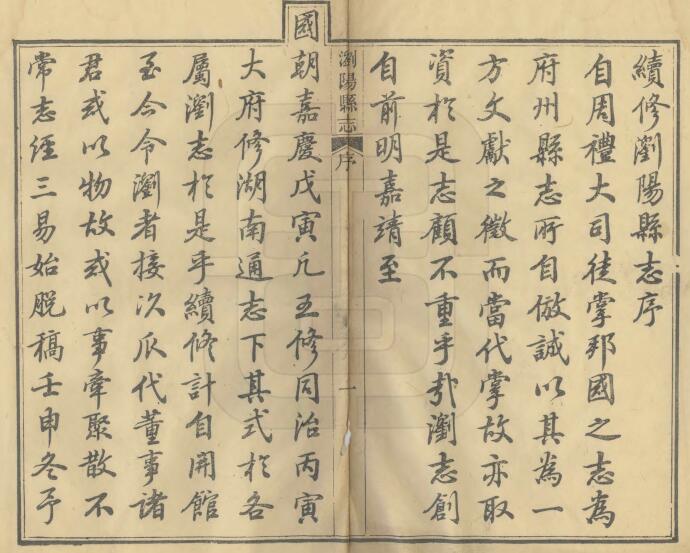 續修瀏陽縣志序
自周禮大司徒掌邦國之志為
府州縣志所自倣誠以其為一
方文獻之徵而當代掌故亦取
資於是志顧不重乎哉瀏志創
自前明嘉靖至
瀏陽縣志
序
一
國朝嘉慶戊寅凡五修同治丙寅
大府修湖南通志下其式於各
屬瀏志於是乎續修計自開館
至今令瀏者接次瓜代董事諸
君或以物故或以事牽聚散不
常志經三易始脫稿壬申冬予